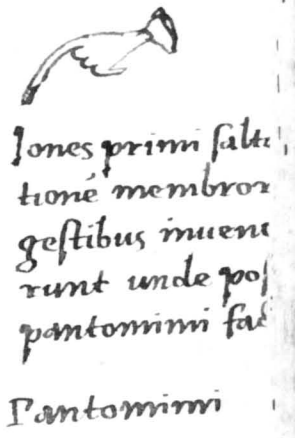 Iones primi salta
tioné membror
gestibus inuene
runt unde pos
pantomimi fac
Pantomimi